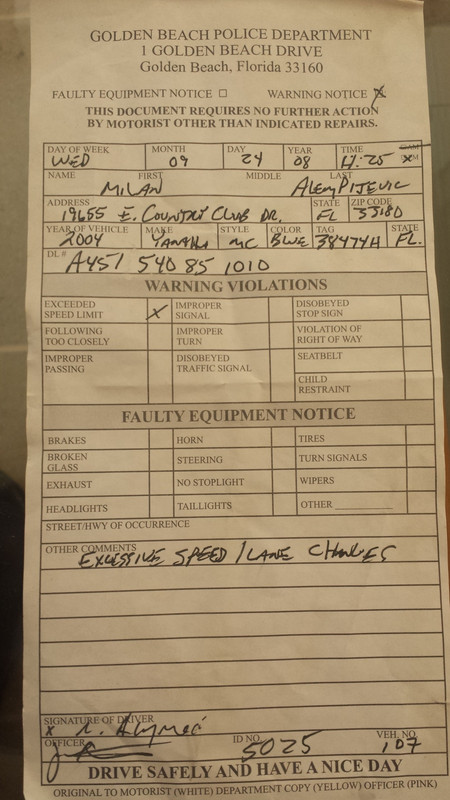 GOLDEN BEACH POLICE DEPARTMENT
1 GOLDEN BEACH DRIVE
Golden Beach, Florida 33160
FAULTY EQUIPMENT NOTICE ☐ WARNING NOTICE X
THIS DOCUMENT REQUIRES NO FURTHER ACTION
BY MOTORIST OTHER THAN INDICATED REPAIRS.
DAY OF WEEK MONTH DAY YEAR TIME
WED 09 24 08 X PM
NAME FIRST MIDDLE LAST
MILAN
ADDRESS STATE ZIP CODE
19655 E. COUNTRY CLUB DR. FL 33180
YEAR OF VEHICLE MAKE STYLE COLOR TAG STATE
2004 YAMAHA MC BLUE 38474H FL.
DL # A451 540 85 1010
WARNING VIOLATIONS
EXCEEDED SPEED LIMIT X IMPROPER SIGNAL DISOBEYED STOP SIGN
FOLLOWING TOO CLOSELY IMPROPER TURN VIOLATION OF RIGHT OF WAY
IMPROPER PASSING DISOBEYED TRAFFIC SIGNAL SEATBELT
CHILD RESTRAINT
FAULTY EQUIPMENT NOTICE
BRAKES HORN TIRES
BROKEN GLASS STEERING TURN SIGNALS
EXHAUST NO STOPLIGHT WIPERS
HEADLIGHTS TAILLIGHTS OTHER
STREET/HWY OF OCCURRENCE
OTHER COMMENTS
EXCESSIVE SPEED / LANE CHANGES
SIGNATURE OF DRIVER
X
OFFICER ID NO. 5025 VEH. NO. 107
DRIVE SAFELY AND HAVE A NICE DAY
ORIGINAL TO MOTORIST (WHITE) DEPARTMENT COPY (YELLOW) OFFICER (PINK)